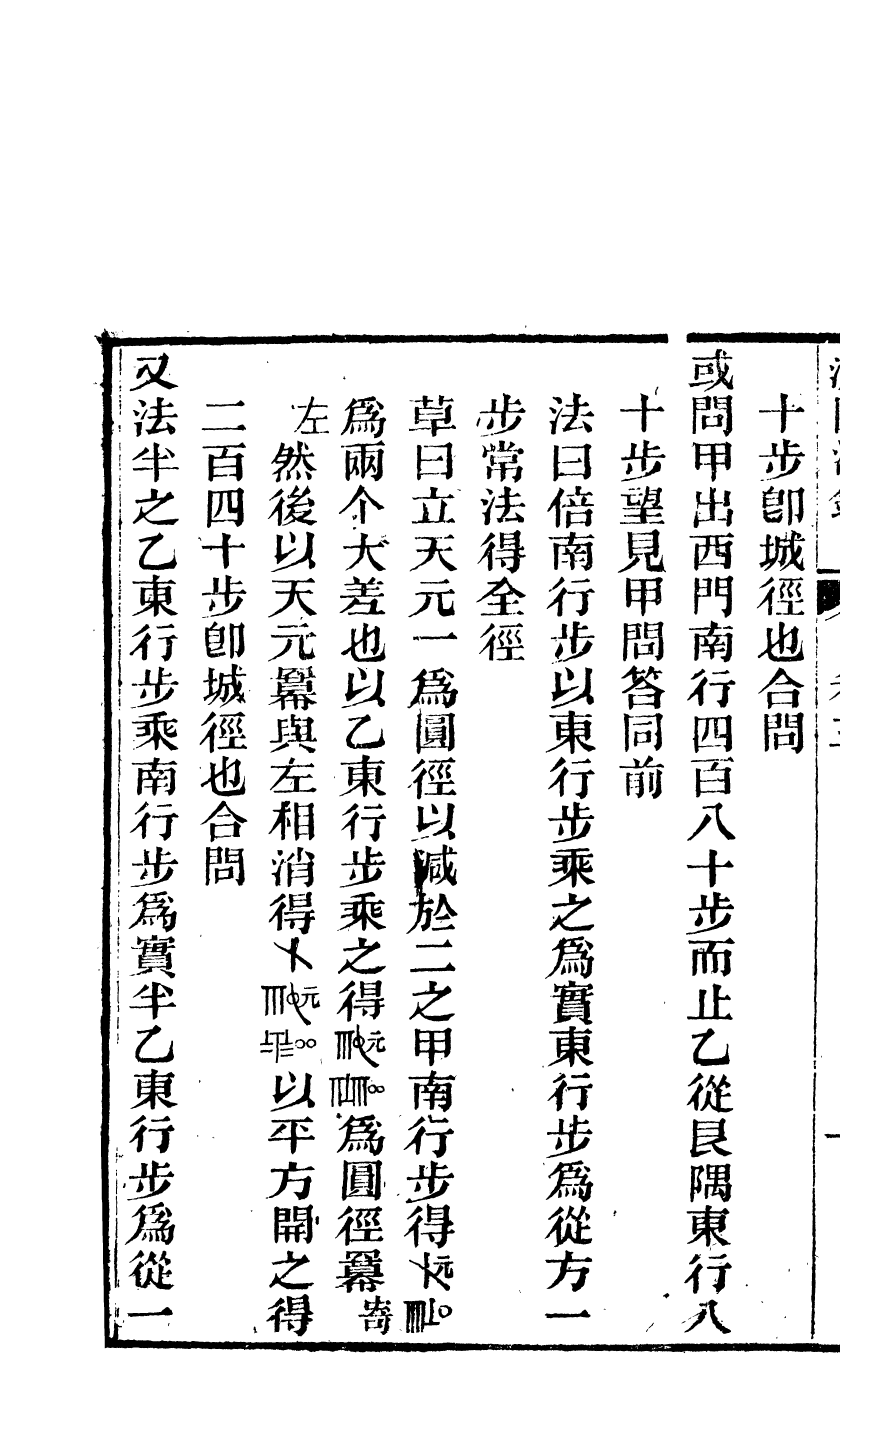 十步卽城徑也合問
或問甲出西門南行四百八十步而止乙從艮隅東行八
十步望見甲問答同前
法曰倍南行步以東行步乘之爲實東行步爲從方一
步常法得全徑
草曰立天元一爲圓徑以減於二之甲南行步得元
爲兩个大差也以乙東行步乘之得元爲圓徑冪寄
左然後以天元冪與左相消得元以平方開之得
二百四十步卽城徑也合問
又法半之乙東行步乘南行步爲實半乙東行步爲從一